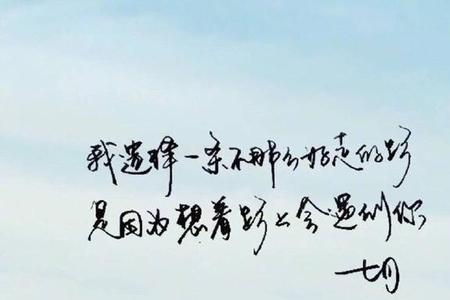 我選择一条不那么好走的路
是因为想着路上会遇到你
七月